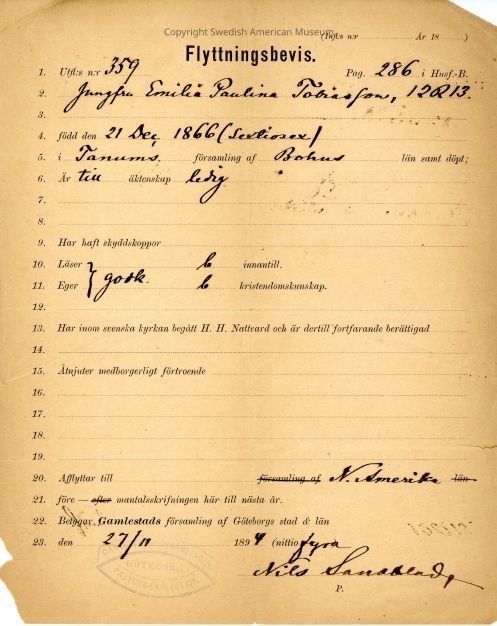 Copyright Swedish American Museum
(Infl:s n:r År 18 )
Flyttningsbevis.
1. Utfl:s n:r 359 Pag. 286 i Husf.-B.
2. Jungfru Emilia Paulina Tobiasson, 12213.
3.
4. född den 21 Dec 1866 (Sextiosex)
5. i Tanums församling af Bohus län samt döpt;
6. Är till äktenskap ledig
7.
8.
9. Har haft skyddskoppor
10. Läser b innantill.
11. Eger } godk. b kristendomskunskap.
12.
13. Har inom svenska kyrkan begått H. H. Nattvard och är dertill fortfarande berättigad
14.
15. Åtnjuter medborgerligt förtroende
16.
17.
18.
19.
20. Afflyttar till församling af N. Amerika län
21. före — efter mantalsskrifningen här till nästa år.
22. Betygar, Gamlestads församling af Göteborgs stad & län
23. den 27/11 1894 (nittiofyra
Nils Sandblad,
P.